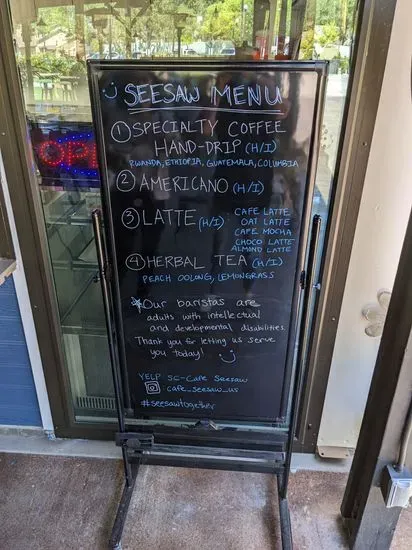 SEESAW MENU
① SPECIALTY COFFEE
HAND-DRIP (H/I)
RWANDA, ETHIOPIA, GUATEMALA, COLUMBIA
② AMERICANO (H/I)
③ LATTE (H/I)
CAFE LATTE
OAT LATTE
CAFE MOCHA
CHOCO LATTE
ALMOND LATTE
④ HERBAL TEA (H/I)
PEACH OOLONG, LEMONGRASS
*Our baristas are
adults with intellectual
and developmental disabilities.
Thank you for letting us serve
you today!
YELP SC-Cafe Seesaw
cafe_seesaw_us
#seesawtogether